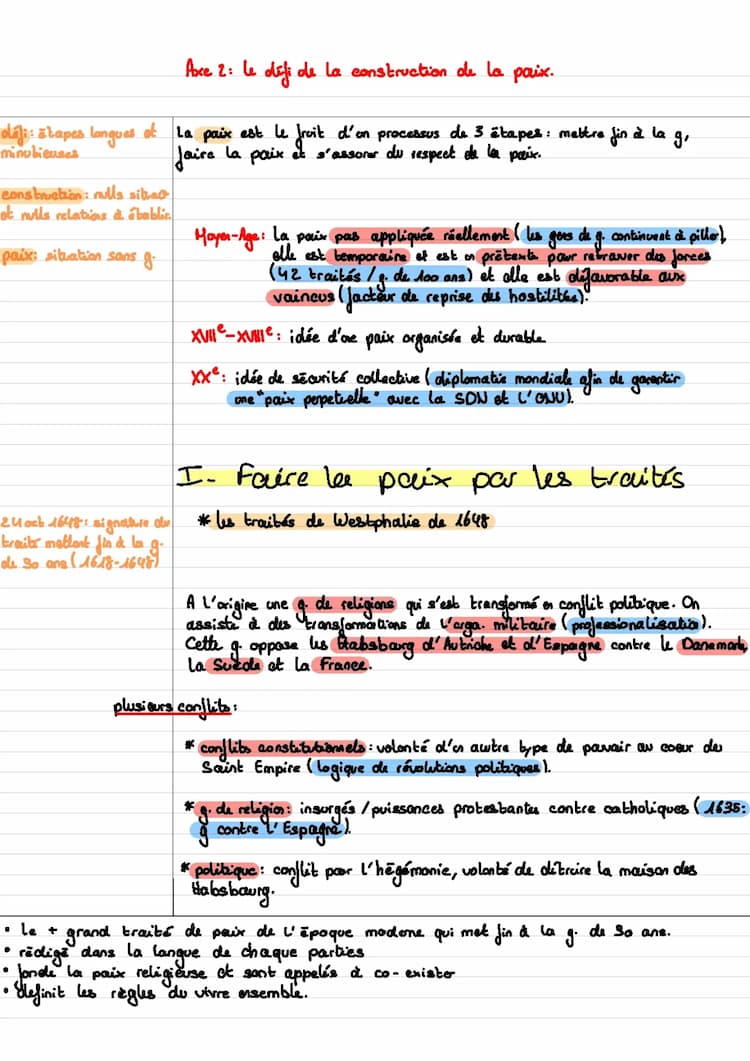 Axe 2: le défi de la construction de la paix.
défi: étapes longues et
minutieuses
construction: nvlls situa°
et nvlls relations à établir.
paix: situation sans g.
La paix est le fruit d'un processus de 3 étapes: mettre fin à la g,
faire la paix et s'assurer du respect de la paix.
Moyen-Age: La paix pas appliquée réellement (les gens de g. continuent à piller),
elle est temporaire et est un prétexte pour retrouver des forces
(42 traités / g. de 100 ans) et elle est défavorable aux
vaincus (facteur de reprise des hostilités).
XVIIe-XVIIIe: idée d'une paix organisée et durable
XXe: idée de sécurité collective (diplomatie mondiale afin de garantir
une "paix perpetuelle" avec la SDN et L'ONU).
I- Faire la paix par les traités
24 oct 1648: signature du
traité mettant fin à la g.
de 30 ans (1618-1648)
* les traités de Westphalie de 1648
A l'origine une g. de religions qui s'est transformé en conflit politique. On
assiste à des transformations de l'orga. militaire (professionalisatio).
Cette g. oppose les Habsbourg d'Autriche et d'Espagne contre le Danemark,
La Suède et la France.
plusieurs conflits:
* conflits constitutionnels: volonté d'un autre type de pouvoir au coeur du
Saint Empire (logique de révolutions politiques).
* g. de religion: insurgés / puissances protestantes contre catholiques (1635:
g contre l'Espagne).
* politique: conflit pour l'hégémonie, volonté de détruire la maison des
Habsbourg.
• Le + grand traité de paix de l'époque moderne qui met fin à la g. de 30 ans.
• rédigé dans la langue de chaque parties
• fonde la paix religieuse et sont appelés à co-exister
• définit les règles du vivre ensemble.